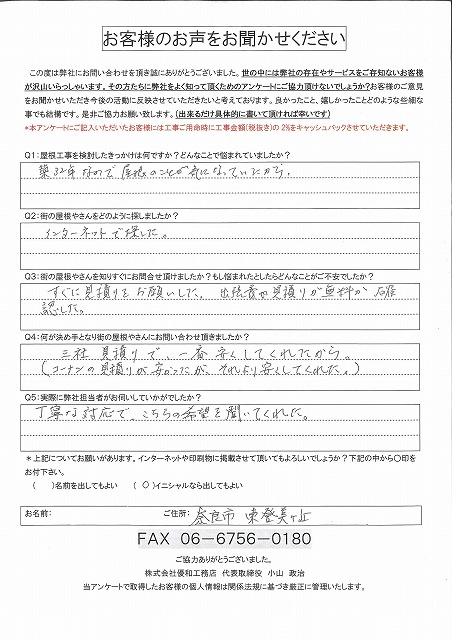 お客様のお声をお聞かせください
この度は弊社にお問い合わせを頂き誠にありがとうございました。世の中には弊社の存在やサービスをご存知ないお客様
が沢山いらっしゃいます。その方たちに弊社をよく知って頂くためのアンケートにご協力頂けないでしょうか?お客様のご意見
をお聞かせいただき今後の活動に反映させていきたいと考えております。良かったこと、嬉しかったことどのような些細な
事でも結構です。是非ご協力お願い致します。(出来るだけ具体的に書いて頂ければ幸いです)
*本アンケートにご記入いただいたお客様には工事ご用命時に工事金額(税抜き)の 2%をキャッシュバックさせていただきます。
Q1:屋根工事を検討したきっかけは何ですか?どんなことで悩まれていましたか?
築32年なので屋根のことが気になっていたから。
Q2:街の屋根やさんをどのように探しましたか?
インターネットで探した。
Q3:街の屋根やさんを知りすぐにお問合せ頂けましたか?もし悩まれたとしたらどんなことがご不安でしたか?
すぐに見積りをお願いした。出張費や見積りが無料か確
認した。
Q4:何が決め手となり街の屋根やさんにお問い合わせ頂きましたか?
三社見積りで、一番安くしてくれたから。
(コーナンの見積りが安かったが、それより安くしてくれた。)
Q5:実際に弊社担当者がお伺いしていかがでしたか?
丁寧な対応で、こちらの希望を聞いてくれた。
*上記についてお願いがあります。インターネットや印刷物に掲載させて頂いてもよろしいでしょうか?下記の中から〇印を
お付下さい。
( )名前を出してもよい ( 〇 )イニシャルなら出してもよい
お名前: ご住所: 奈良市 東登美ヶ丘
FAX 06-6756-0180
ご協力ありがとうございました。
株式会社優和工務店 代表取締役 小山 政治
当アンケートで取得したお客様の個人情報は関係法規に基づき厳正に管理いたします。